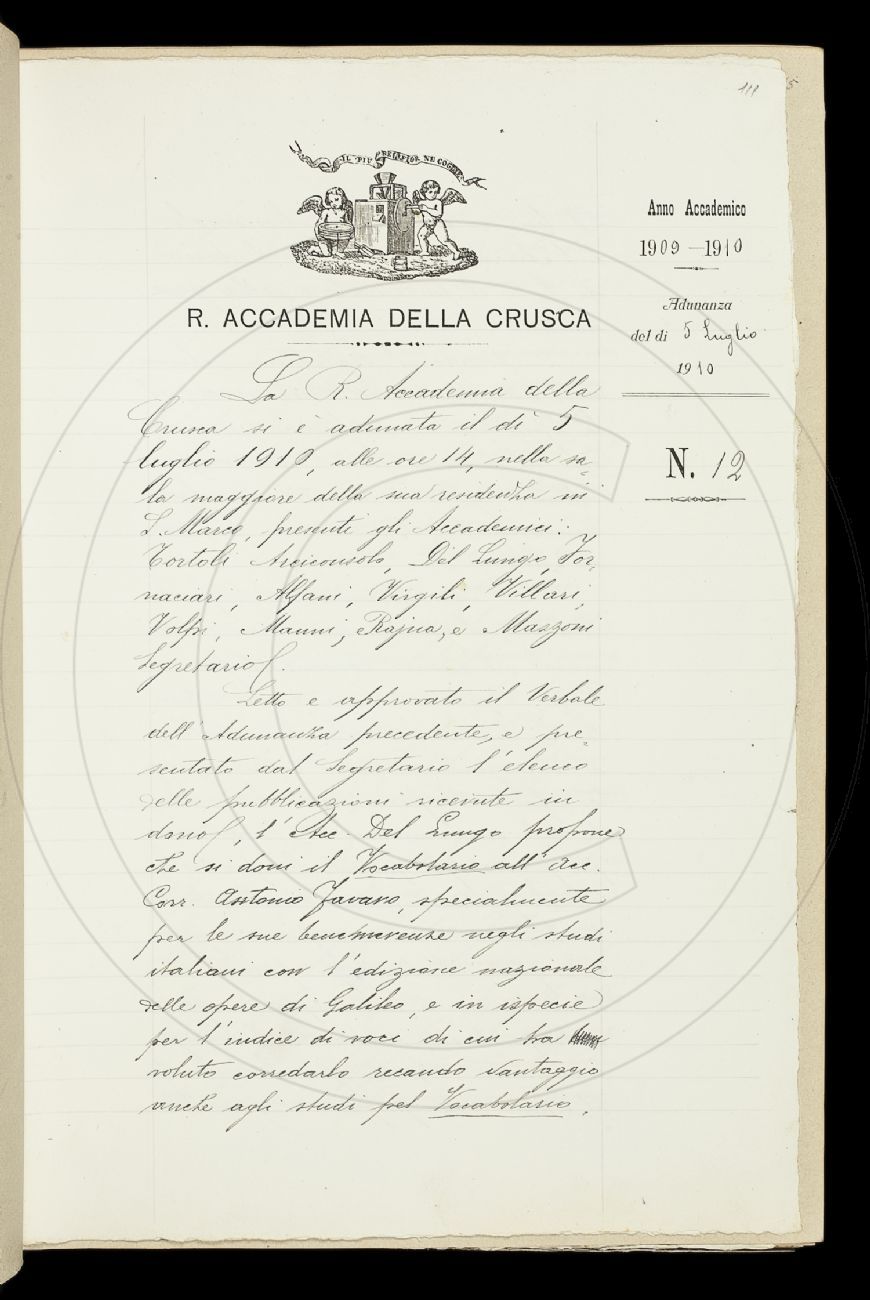 111
IL PIÙ BEL FIOR NE COGLIE
R. ACCADEMIA DELLA CRUSCA
Anno Accademico
1909-1910
Adunanza
del dì 5 Luglio
1910
N. 12
La R. Accademia della
Crusca si è adunata il dì 5
luglio 1910, alle ore 14, nella sa-
la maggiore della sua residenza in
S. Marco, presenti gli Accademici:
Tortoli Arciconsolo, Del Lungo, For-
naciari, Alfani, Virgili, Villari,
Volpi, Manni, Rajna, e Mazzoni
Segretario.
Letto e approvato il Verbale
dell'Adunanza precedente, e pre-
sentato dal Segretario l'elenco
delle pubblicazioni ricevute in
dono, l'Acc. Del Lungo propone
che si doni il Vocabolario all'Acc.
Corr. Antonio Favaro, specialmente
per le sue benemerenze negli studi
italiani con l'edizione nazionale
delle opere di Galileo, e in ispecie
per l'indice di voci di cui ha
voluto corredarlo recando vantaggio
anche agli studi pel Vocabolario.